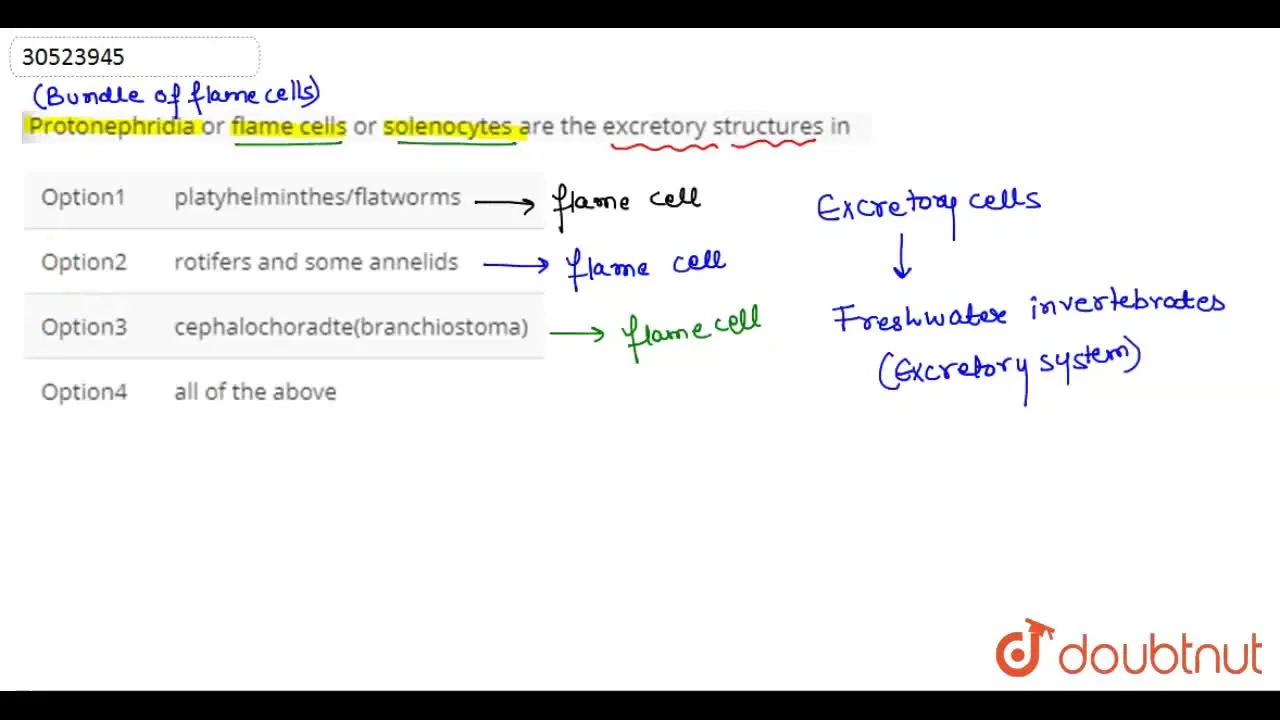 30523945
(Bundle of flame cells)
Protonephridia or flame cells or solenocytes are the excretory structures in
Option1 platyhelminthes/flatworms → flame cell
Option2 rotifers and some annelids → flame cell
Option3 cephalochoradte(branchiostoma) → flame cell
Option4 all of the above
Excretory cells
↓
Freshwater invertebrates
(Excretory system)
doubtnut